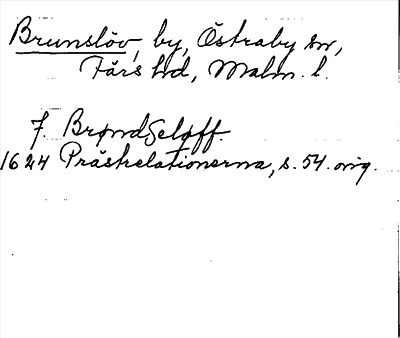 Brunslöv, by, Östraby sn,
Färs hd, Malm. l.
f. Brøndseløff.
1624 Prästrelationerna, s. 54. orig.